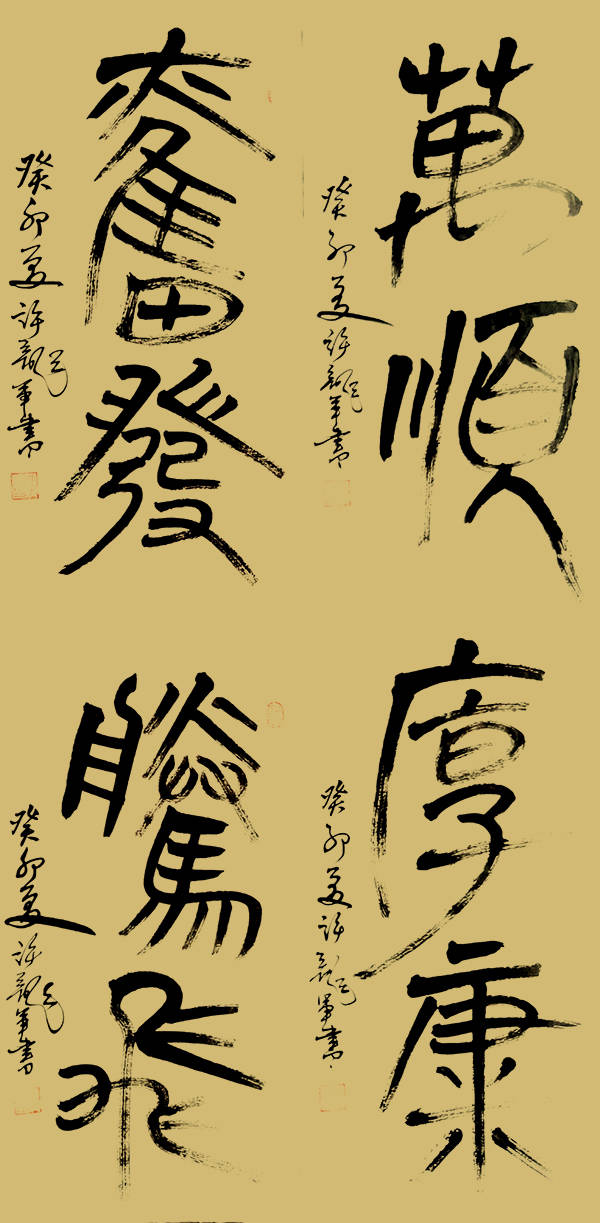 萬順
癸卯夏許龍軍書
奮發
癸卯夏許龍軍書
厚康
癸卯夏許龍軍書
騰飛
癸卯夏許龍軍書